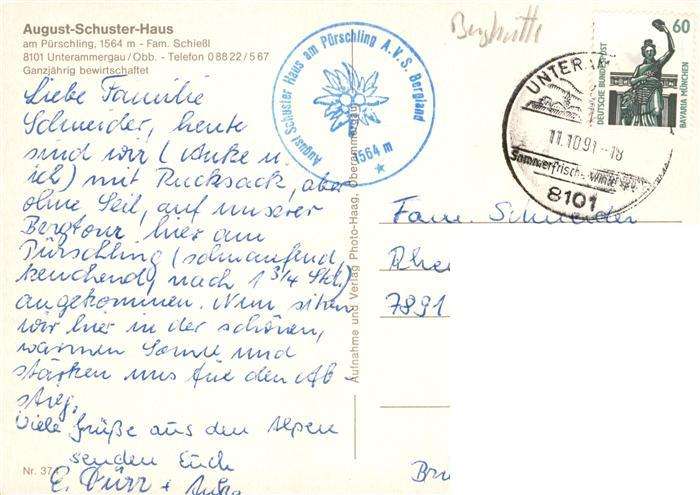 August-Schuster-Haus
am Pürschling, 1564 m - Fam. Schießl
8101 Unterammergau/Obb. - Telefon 0 88 22 / 5 67
Ganzjährig bewirtschaftet
Liebe Familie
Schneider, heute
sind wir (Anke u.
ich) mit Rucksack, aber
ohne Seil, auf unserer
Bergtour hier am
Pürschling (schnaufend,
keuchend, nach 1 3/4 Std.)
angekommen. Nun sitzen
wir hier in der schönen,
warmen Sonne und
stärken uns für den Ab-
stieg.
Viele Grüße aus den Alpen
senden Euch
E. Dürr + Anke
Nr. 37
Aufnahme und Verlag Photo-Haag, Oberammergau
August Schuster Haus am Pürschling A.V.S. Bergland
1564 m
Berghütte
UNTERAM
11.10.91-18
Sommerfrische
8101
60
DEUTSCHE BUNDESPOST
BAVARIA MÜNCHEN
Fam. Schneider
Rhe
7891